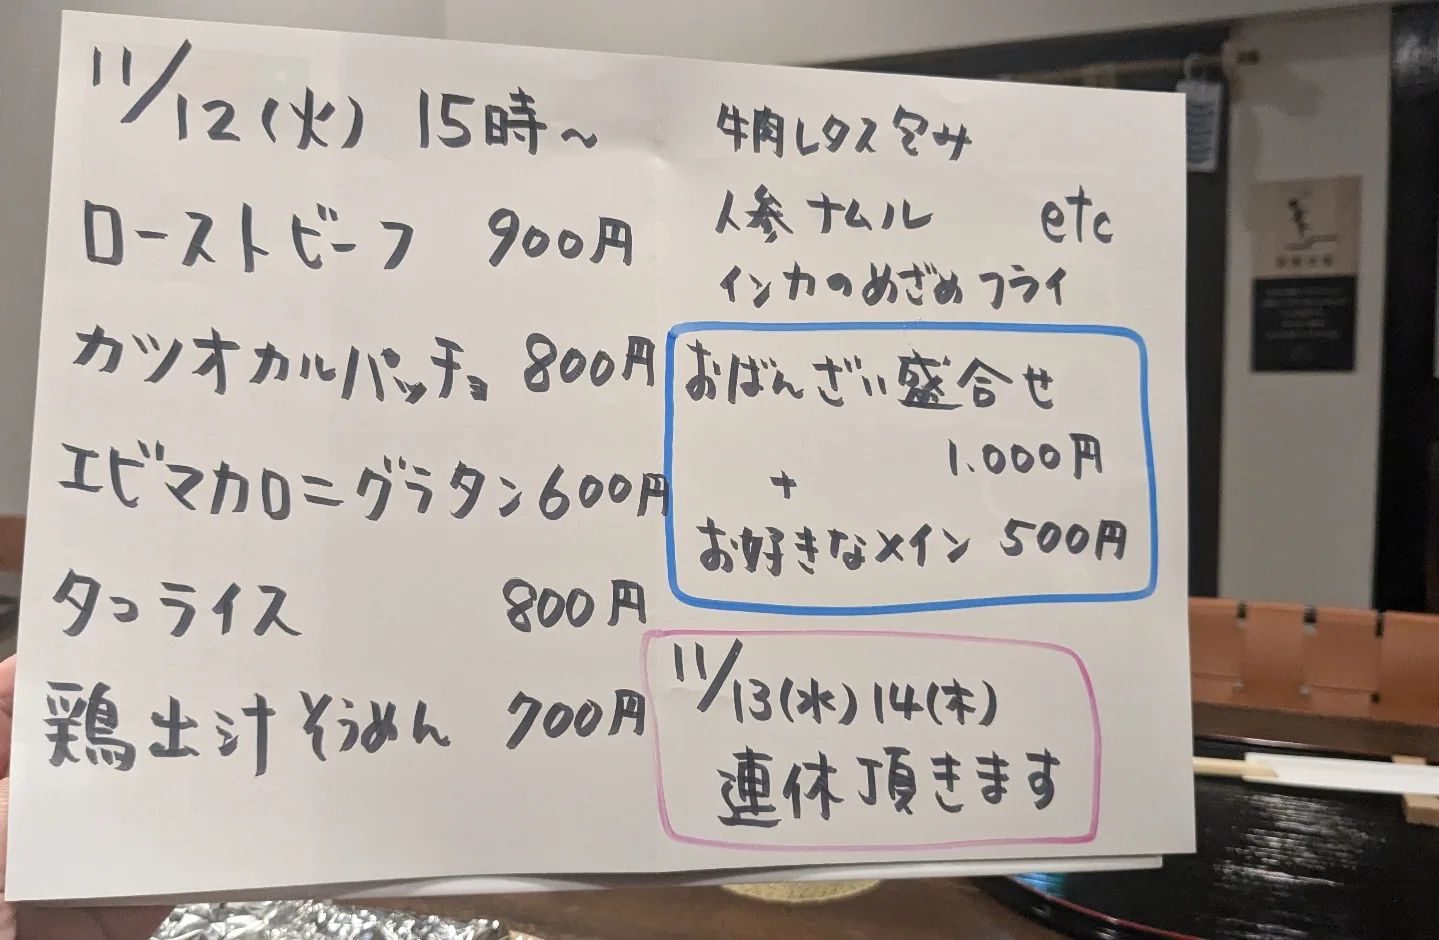 11/12(火) 15時〜
ローストビーフ 900円
カツオカルパッチョ 800円
エビマカロニグラタン600円
タコライス 800円
鶏出汁そうめん 700円
牛肉レタス包み
人参ナムル etc
インカのめざめフライ
おばんざい盛合せ
1.000円
+
お好きなメイン 500円
11/13(水)14(木)
連休頂きます